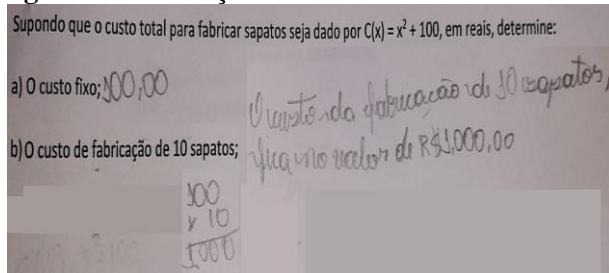 Supondo que o custo total para fabricar sapatos seja dado por C(x) = x² + 100, em reais, determine:
a) O custo fixo; 100,00
O custo da fabricação de 10 sapatos,
b) O custo de fabricação de 10 sapatos; fica no valor de R$1,000,00
100
x 10
1000